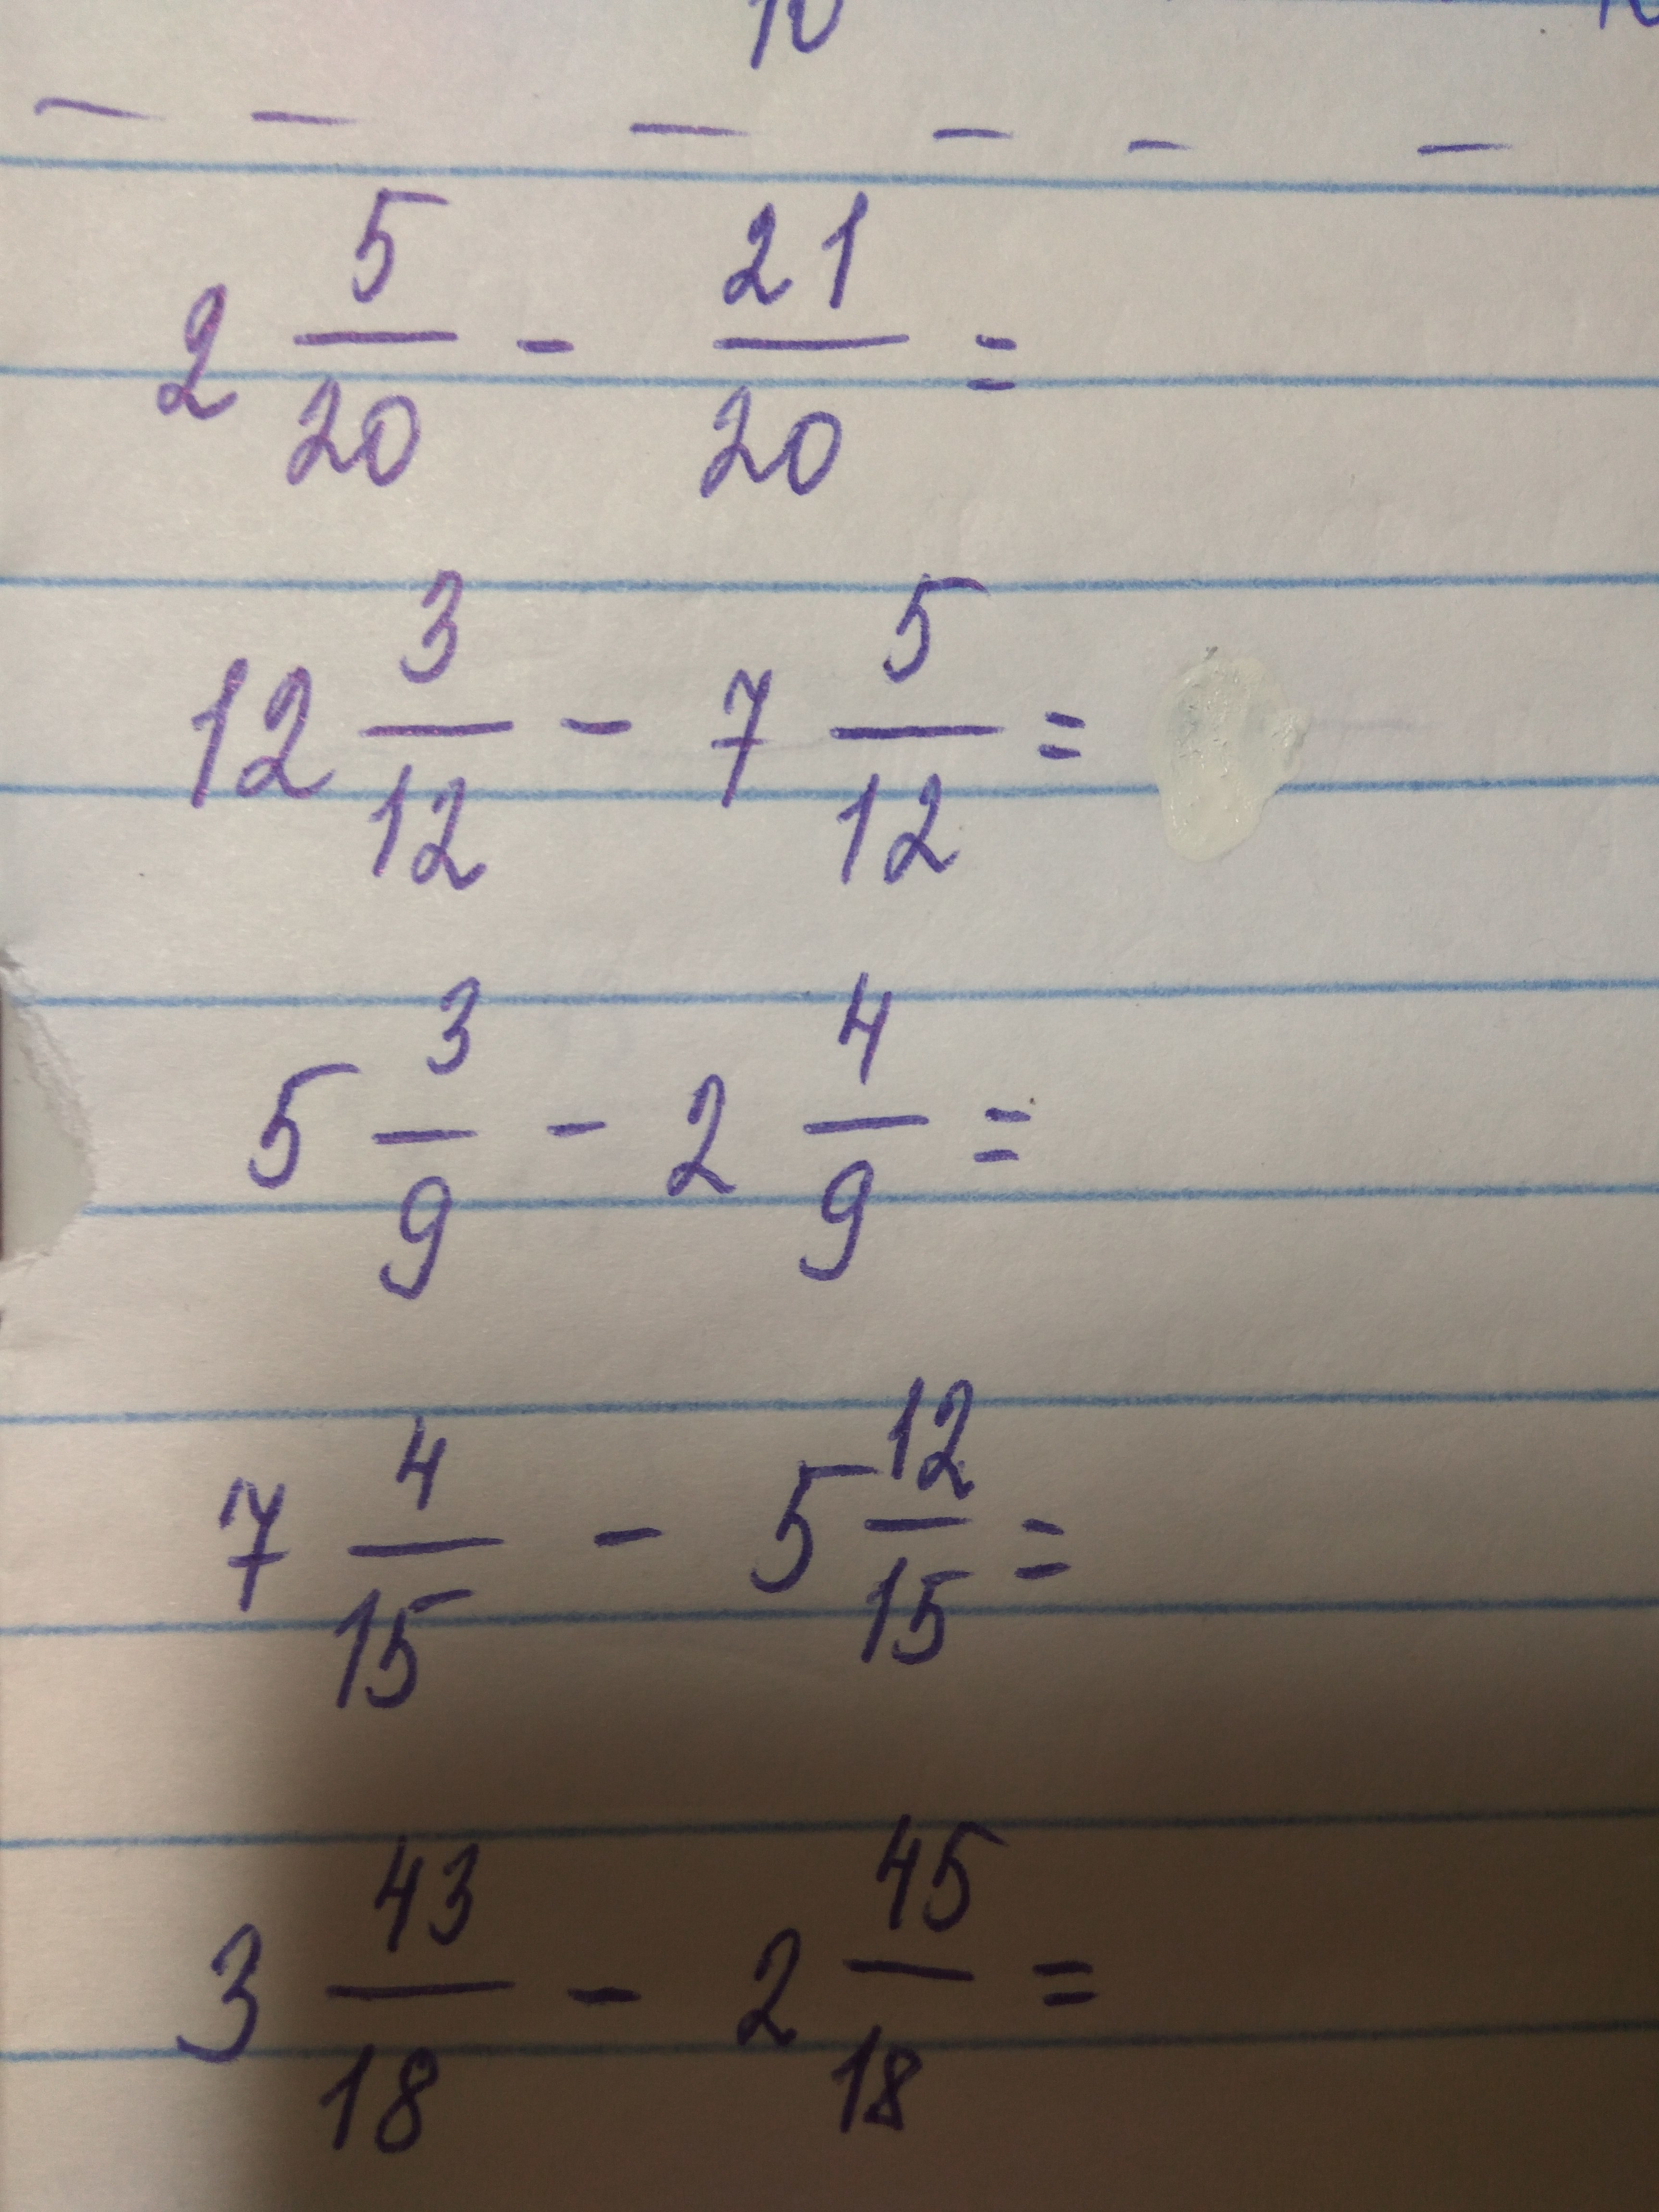 10
2 5/20 - 21/20 =
12 3/12 - 7 5/12 =
5 3/9 - 2 4/9 =
7 4/15 - 5 12/15 =
3 43/18 - 2 45/18 =